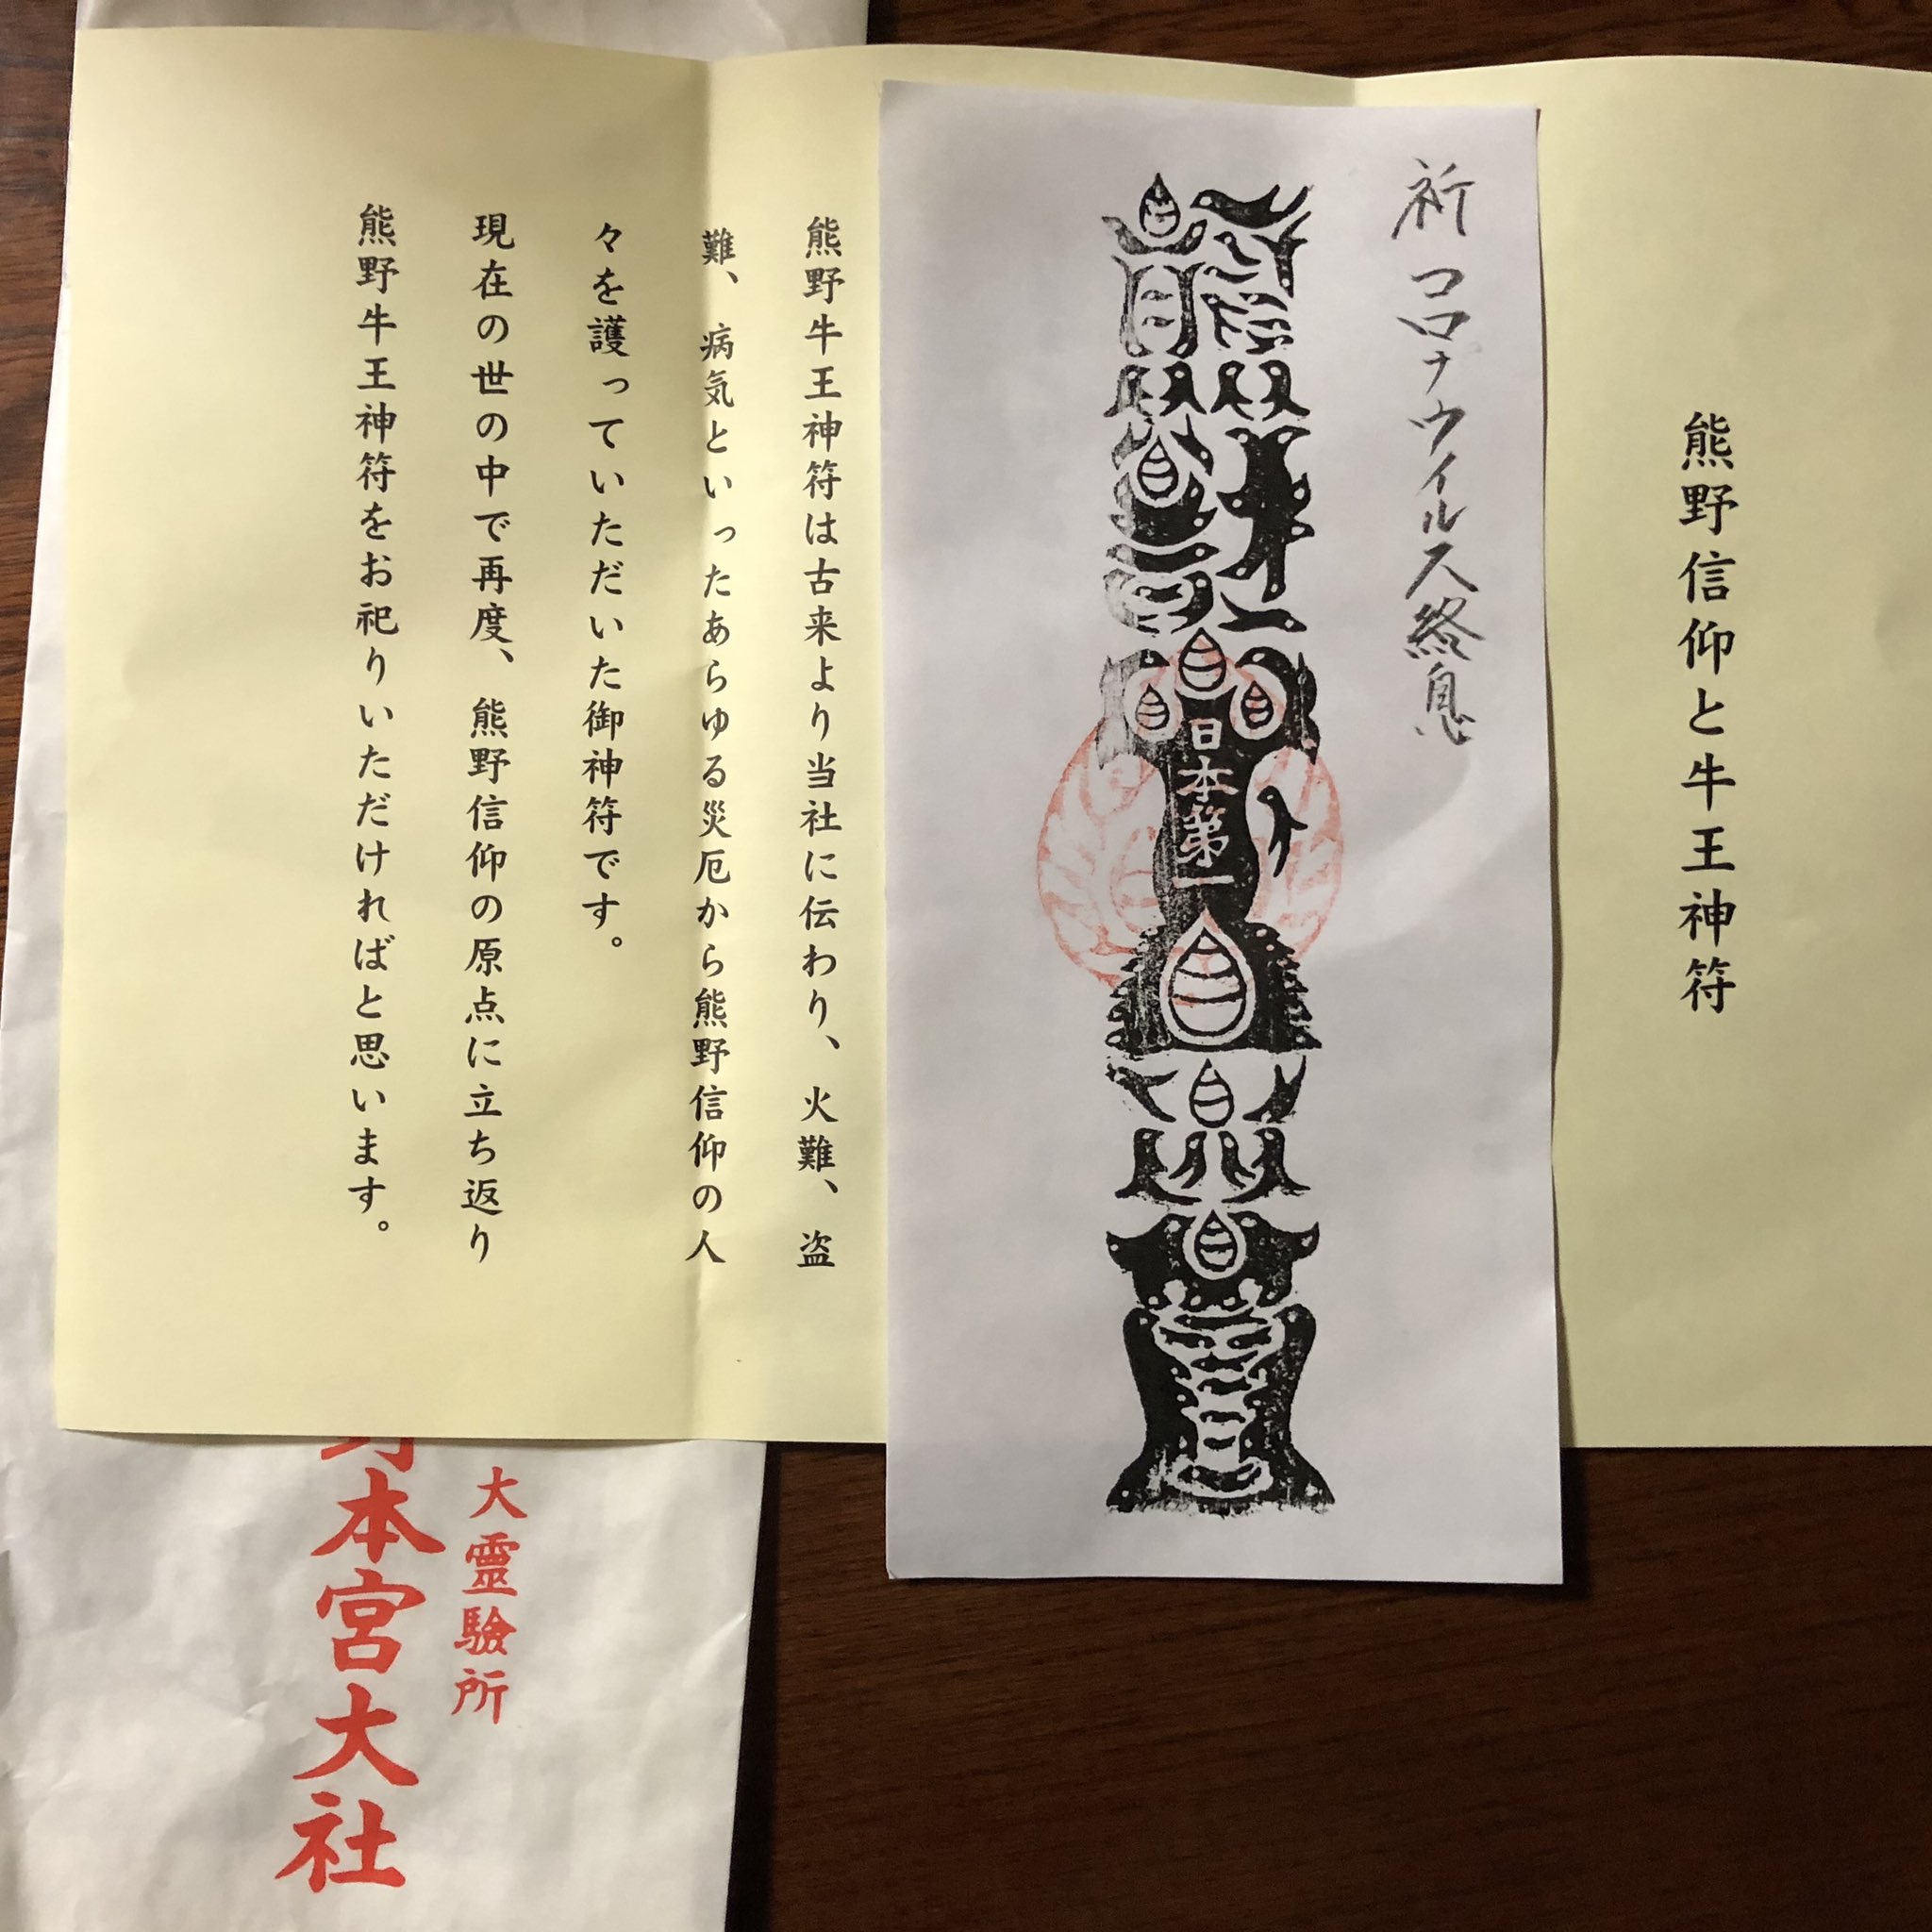 熊野信仰と牛王神符
祈 コロナウイルス終息
日本第一
熊野牛王神符は古来より当社に伝わり、火難、盗
難、病気といったあらゆる災厄から熊野信仰の人
々を護っていただいた御神符です。
現在の世の中で再度、熊野信仰の原点に立ち返り
熊野牛王神符をお祀りいただければと思います。
大霊驗所
本宮大社